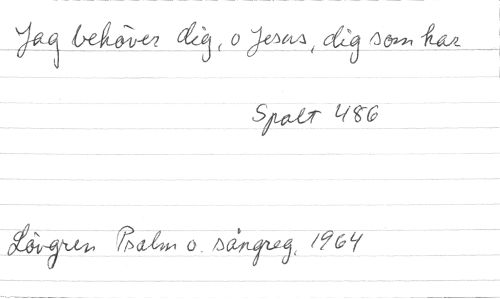 Jag behöver dig, o Jesus, dig som har
Spalt 486
Lövgren Psalm o. sångreg. 1964